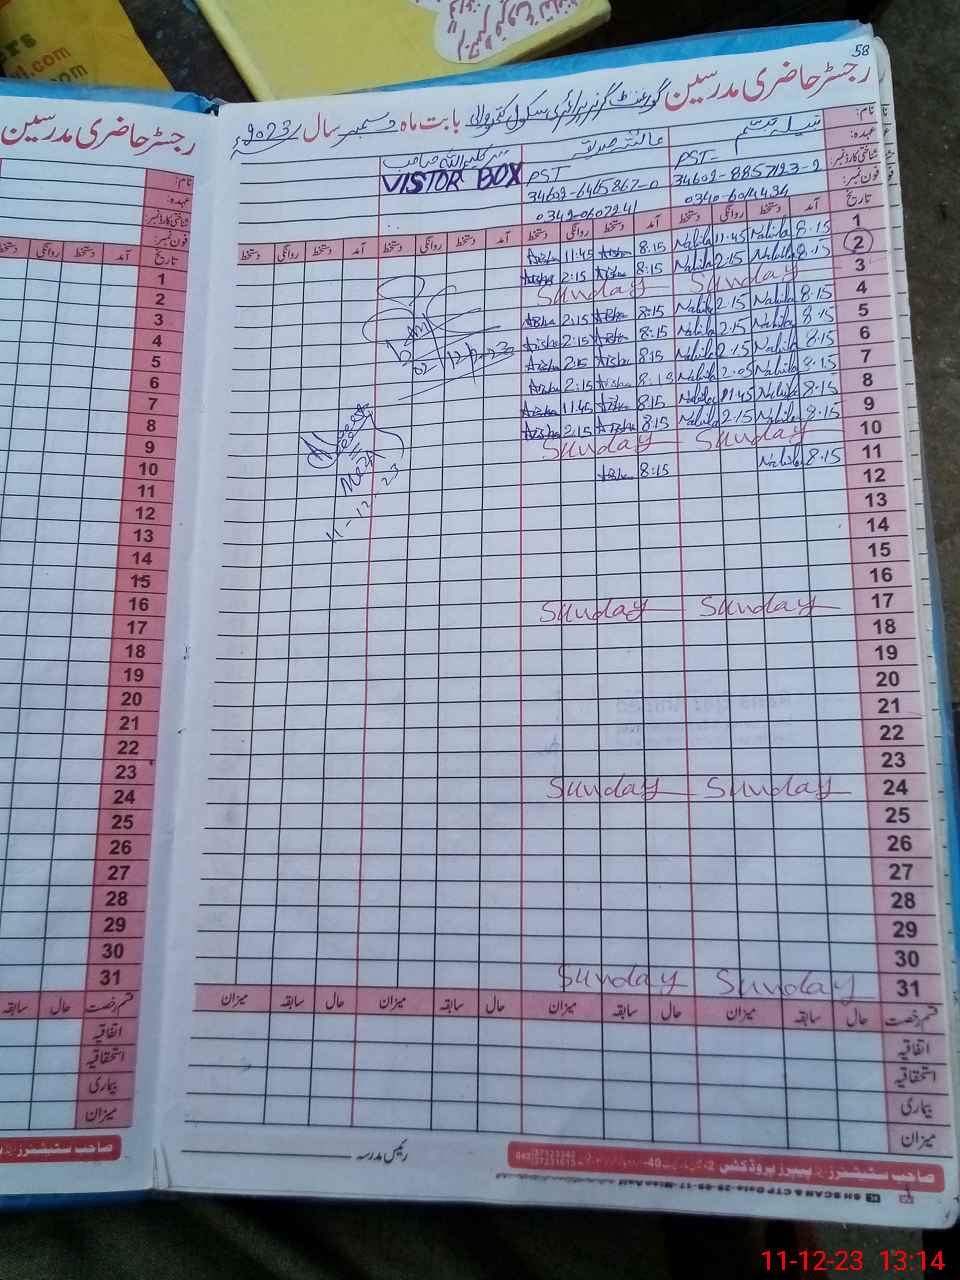 58
رجسٹر حاضری مدرسین گورنمنٹ گرلز پرائمری سکول بابت ماہ دسمبر سال 2023ء
نام: نبیلہ تبسم عائشہ صدیقہ
عہدہ: PST PST VISTOR BOX
شناختی کارڈ نمبر: 34602-8857123-2 34602-6465867-0
فون نمبر: 0340-6014434 0342-0607241
تاریخ آمد دستخط روانگی دستخط آمد دستخط روانگی دستخط آمد دستخط روانگی دستخط آمد دستخط روانگی دستخط
1 8.15 Nabila 11:45 Nabila 8:15 Aisha 11:45 Aisha
2 8.15 Nabila 2:15 Nabila 8:15 Aisha 2:15 Aisha
3 Sunday Sunday
4 8.15 Nabila 2:15 Nabila 8:15 Aisha 2:15 Aisha
5 8.15 Nabila 2:15 Nabila 8:15 Aisha 2:15 Aisha
6 8.15 Nabila 2:15 Nabila 8:15 Aisha 2:15 Aisha
7 8.15 Nabila 2:05 Nabila 8:15 Aisha 2:15 Aisha
8 8.15 Nabila 11:45 Nabila 8:15 Aisha 11:45 Aisha
9 8.15 Nabila 2:15 Nabila 8:15 Aisha 2:15 Aisha
10 Sunday Sunday
11 8.15 Nabila 8:15 Aisha
12
13
14
15
16
17 Sunday Sunday
18
19
20
21
22
23
24 Sunday Sunday
25
26
27
28
29
30
31 Sunday Sunday
02-12-23
11-12-23
قسم رخصت حال سابقہ میزان حال سابقہ میزان حال سابقہ میزان حال سابقہ میزان
اتفاقیہ
استحقاقیہ
بیماری
میزان
رئیس مدرسہ
صاحب سٹیشنرز اینڈ پیپرز پروڈکشن
رجسٹر حاضری مدرسین
نام:
عہدہ:
شناختی کارڈ نمبر:
فون نمبر:
تاریخ آمد دستخط روانگی دستخط
1
2
3
4
5
6
7
8
9
10
11
12
13
14
15
16
17
18
19
20
21
22
23
24
25
26
27
28
29
30
31
قسم رخصت حال سابقہ
اتفاقیہ
استحقاقیہ
بیماری
میزان
صاحب سٹیشنرز
11-12-23 13:14